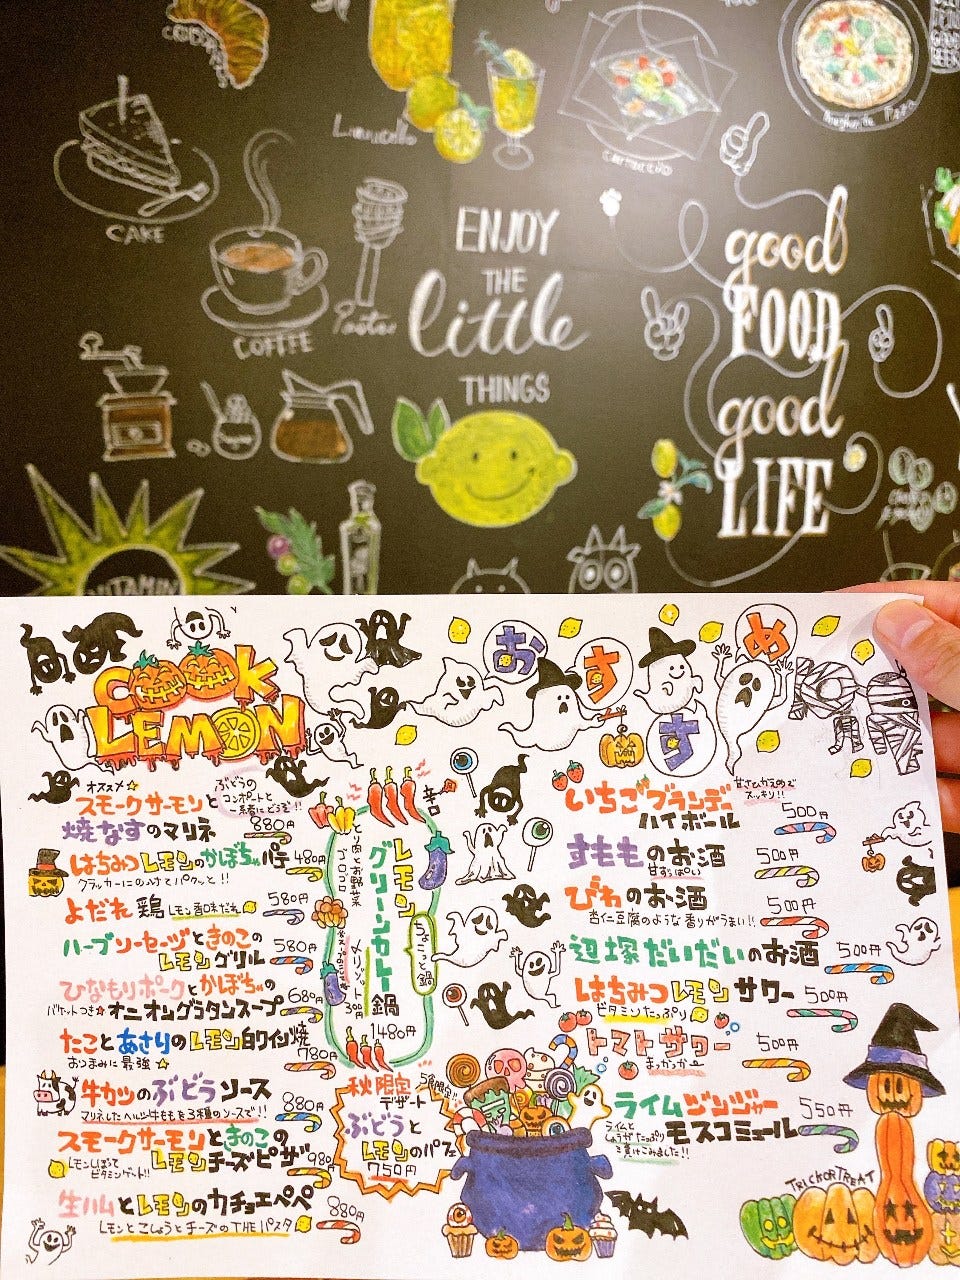 CAKE
COFFEE
Limoncello
ENJOY
THE
little
THINGS
good
FOOD
good
LIFE
VITAMIN
COOK
LEMON
おすすめ
オススメ
スモークサーモンと
焼なすのマリネ
880円
ぶどうの
コンポートと
一緒にどうぞ!!
はちみつレモンのかぼちゃパテ 480円
クラッカーにのせてパクッと!!
よだれ鶏 レモン香味だれ 580円
ハーブソーセージときのこの
レモングリル
580円
ひなもりポークとかぼちゃの
バケットつき オニオングラタンスープ
680円
たことあさりのレモン白ワイン焼
おつまみに最強
780円
牛カツのぶどうソース
マリネしたヘルシー牛ももを3種のソースで!!
880円
スモークサーモンときのこの
レモンチーズピザ
980円
レモンしぼって
ビタミンゲート!!
生ハムとレモンのカチョエペペ
レモンとこしょうとチーズのTHEパスタ
880円
辛口
レモン
グリーンカレー鍋
ちょこっと鍋
とり肉とお野菜
ゴロゴロ
〆リゾット
300円
1480円
秋限定
デザート
5食限定!!
ぶどうと
レモンのパフェ
750円
いちごブランデー
ハイボール
500円
甘さひかえめで
スッキリ!!
すもものお酒
甘ずっぱい
500円
びわのお酒
杏仁豆腐のような香りがうまい!!
500円
辺塚だいだいのお酒
500円
はちみつレモンサワー
ビタミンたっぷり
500円
トマトサワー
まっかっかー
500円
ライムジンジャー
モスコミュール
550円
ライムと
しょうがたっぷり
漬けこみました!!
TRICK OR TREAT